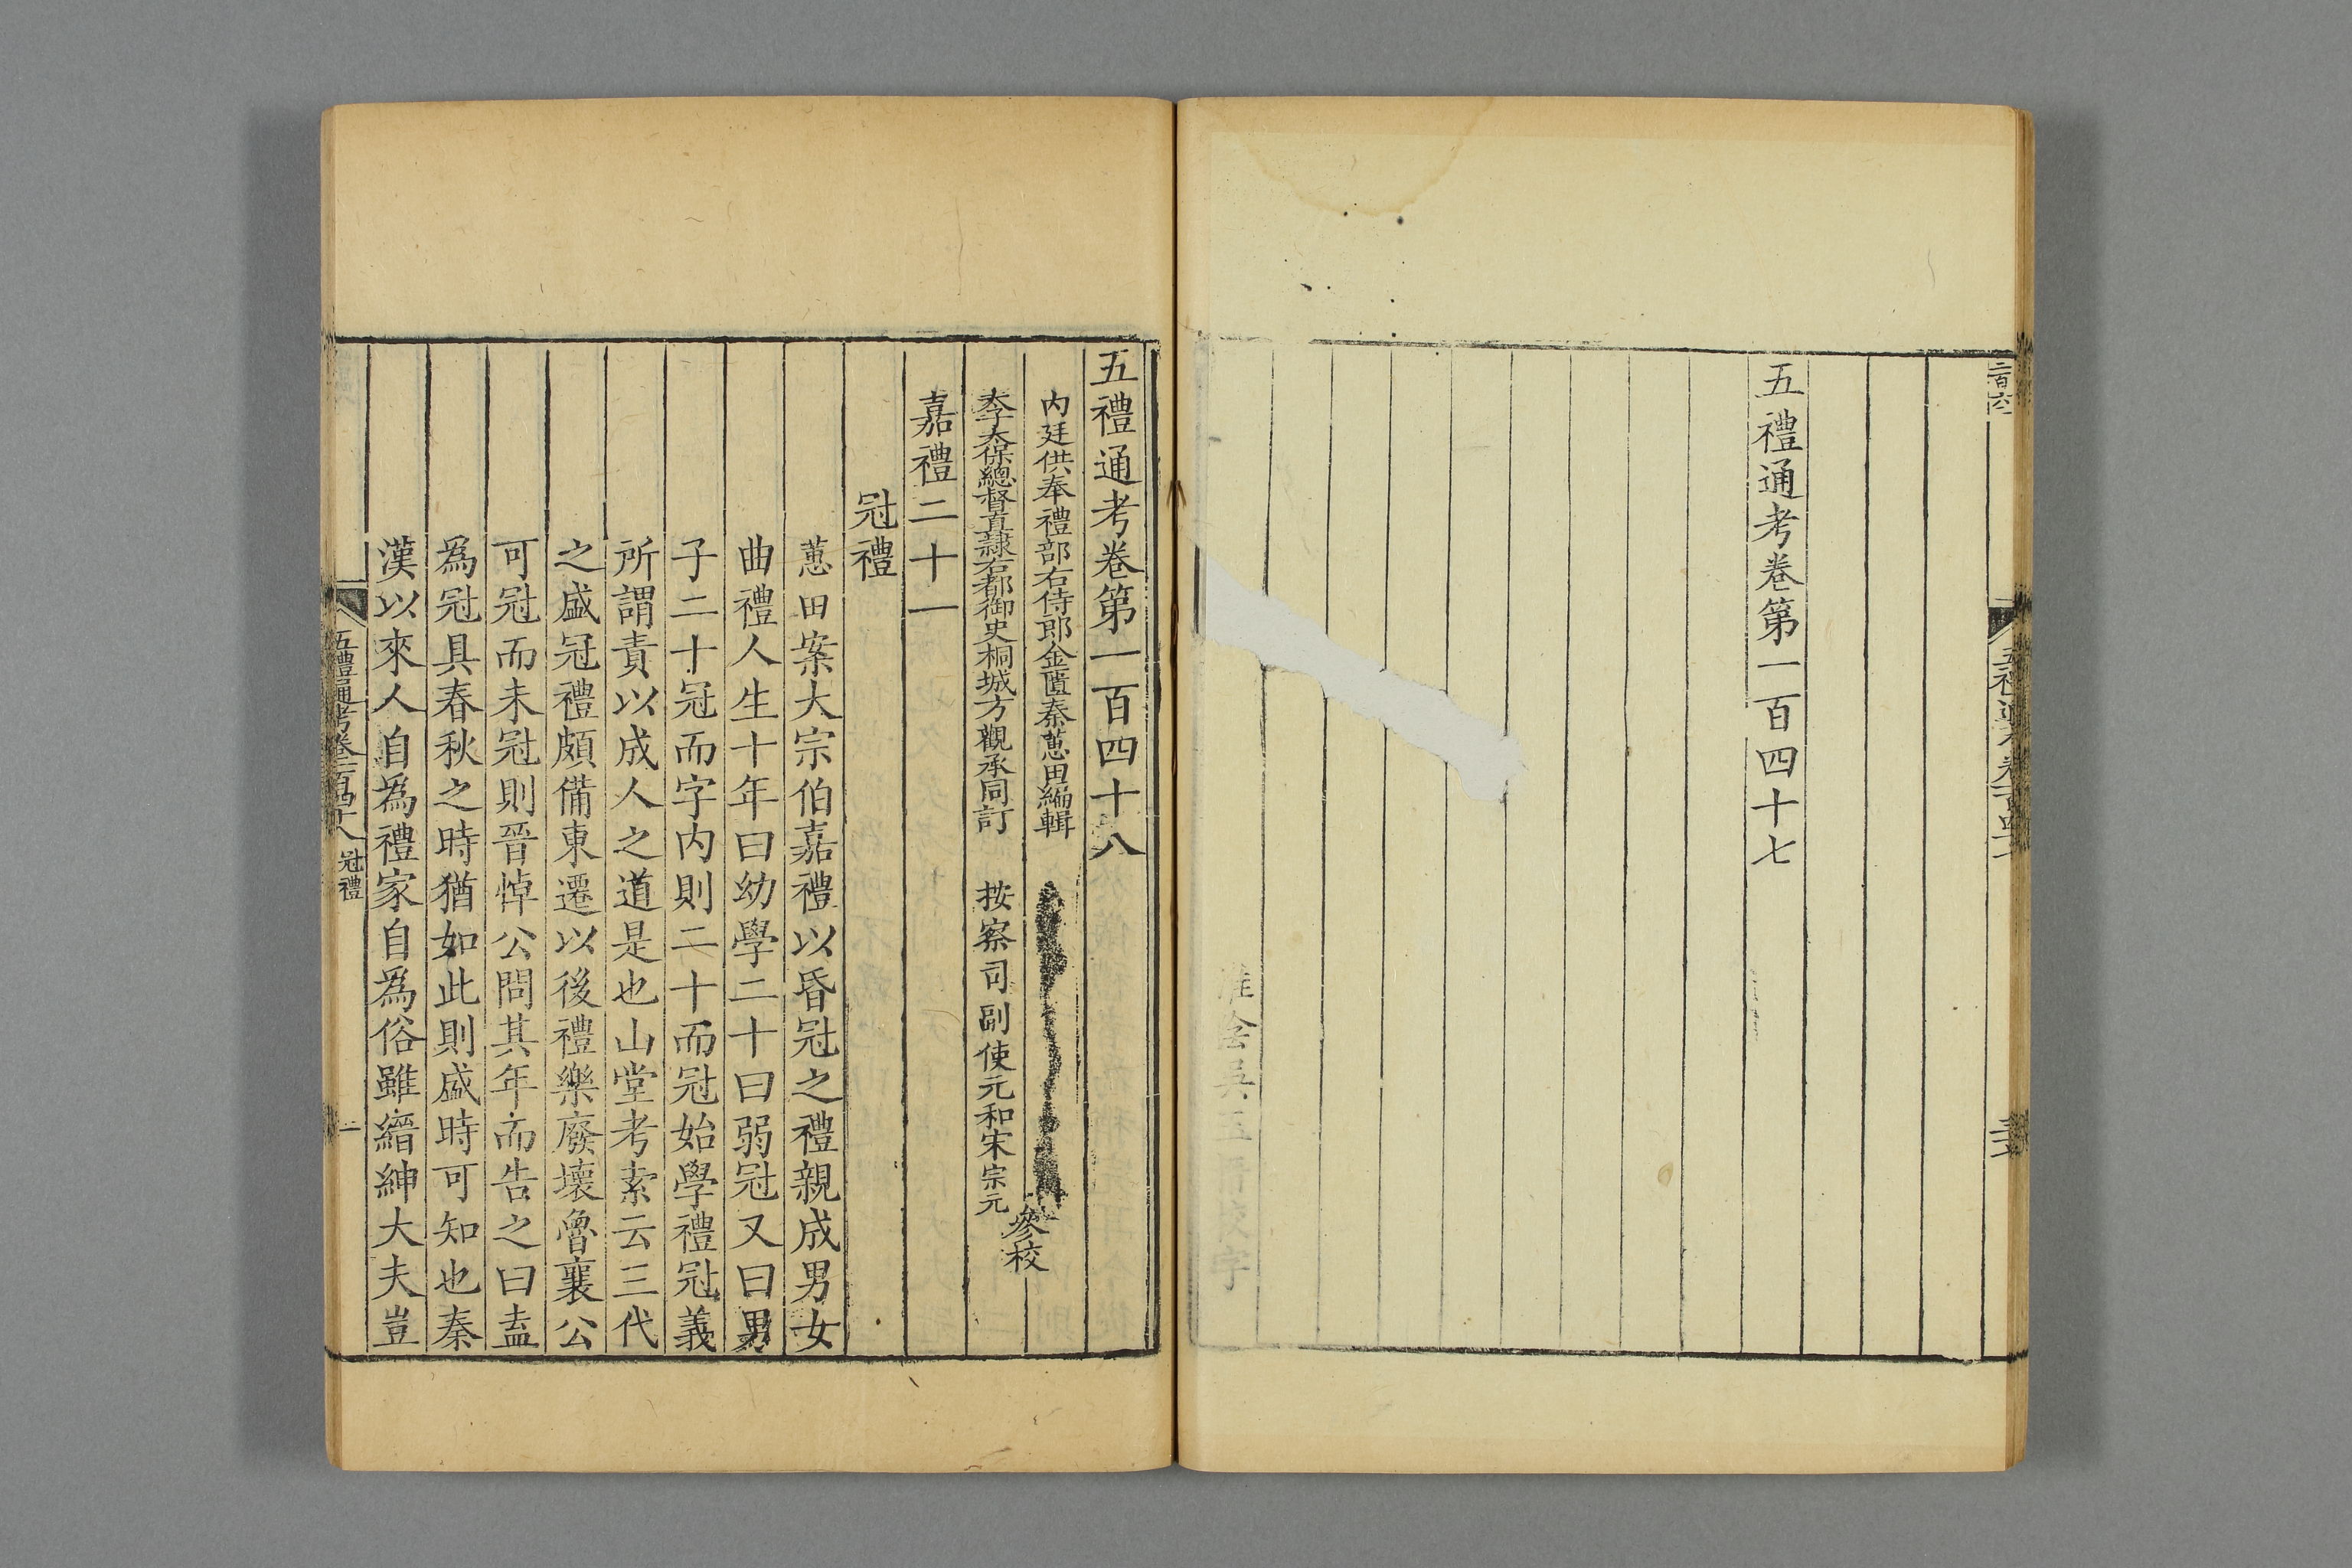 五禮通考卷第一百四十七
五禮通考卷第一百四十八
内廷供奉禮部右侍郎金匱秦蕙田編輯
太保總督直隸右都御史桐城方觀承同訂
按察司副使元和宋宗元
參校
嘉禮二十一
冠禮
蕙田案大宗伯嘉禮以昏冠之禮親成男女
曲禮人生十年曰幼學二十曰弱冠又曰男
子二十冠而字内則二十而冠始學禮冠義
所謂責以成人之道是也山堂考索云三代
之盛冠禮頗備東遷以後禮樂廢壞魯襄公
可冠而未冠則晉悼公問其年而告之曰盍
為冠具春秋之時猶如此則盛時可知也秦
漢以來人自為禮家自為俗雖縉紳大夫豈
五禮通考卷一百四十八 冠禮 一